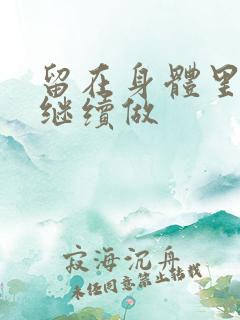 留在身體里
继續做
寂海沉舟
未经同意禁止转载